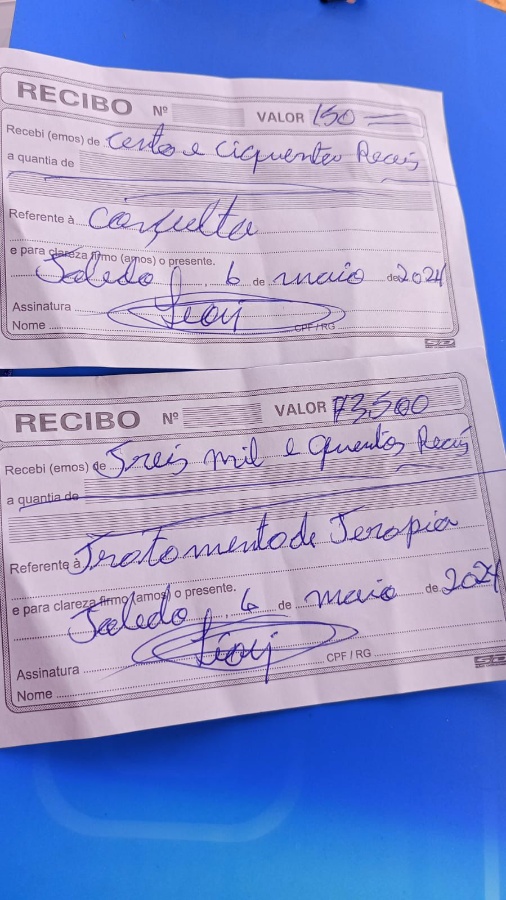 RECIBO Nº VALOR 150
Recebi (emos) de cento e ciquenta Reais
a quantia de
Referente à consulta
e para clareza firmo (amos) o presente.
Toledo, 6 de maio de 2024
Assinatura
Nome CPF / RG
RECIBO Nº VALOR 3,500
Recebi (emos) de Treis mil e quentos Reais
a quantia de
Referente à Tratamento de Terapia
e para clareza firmo (amos) o presente.
Toledo, 6 de maio de 2024
Assinatura
Nome CPF / RG